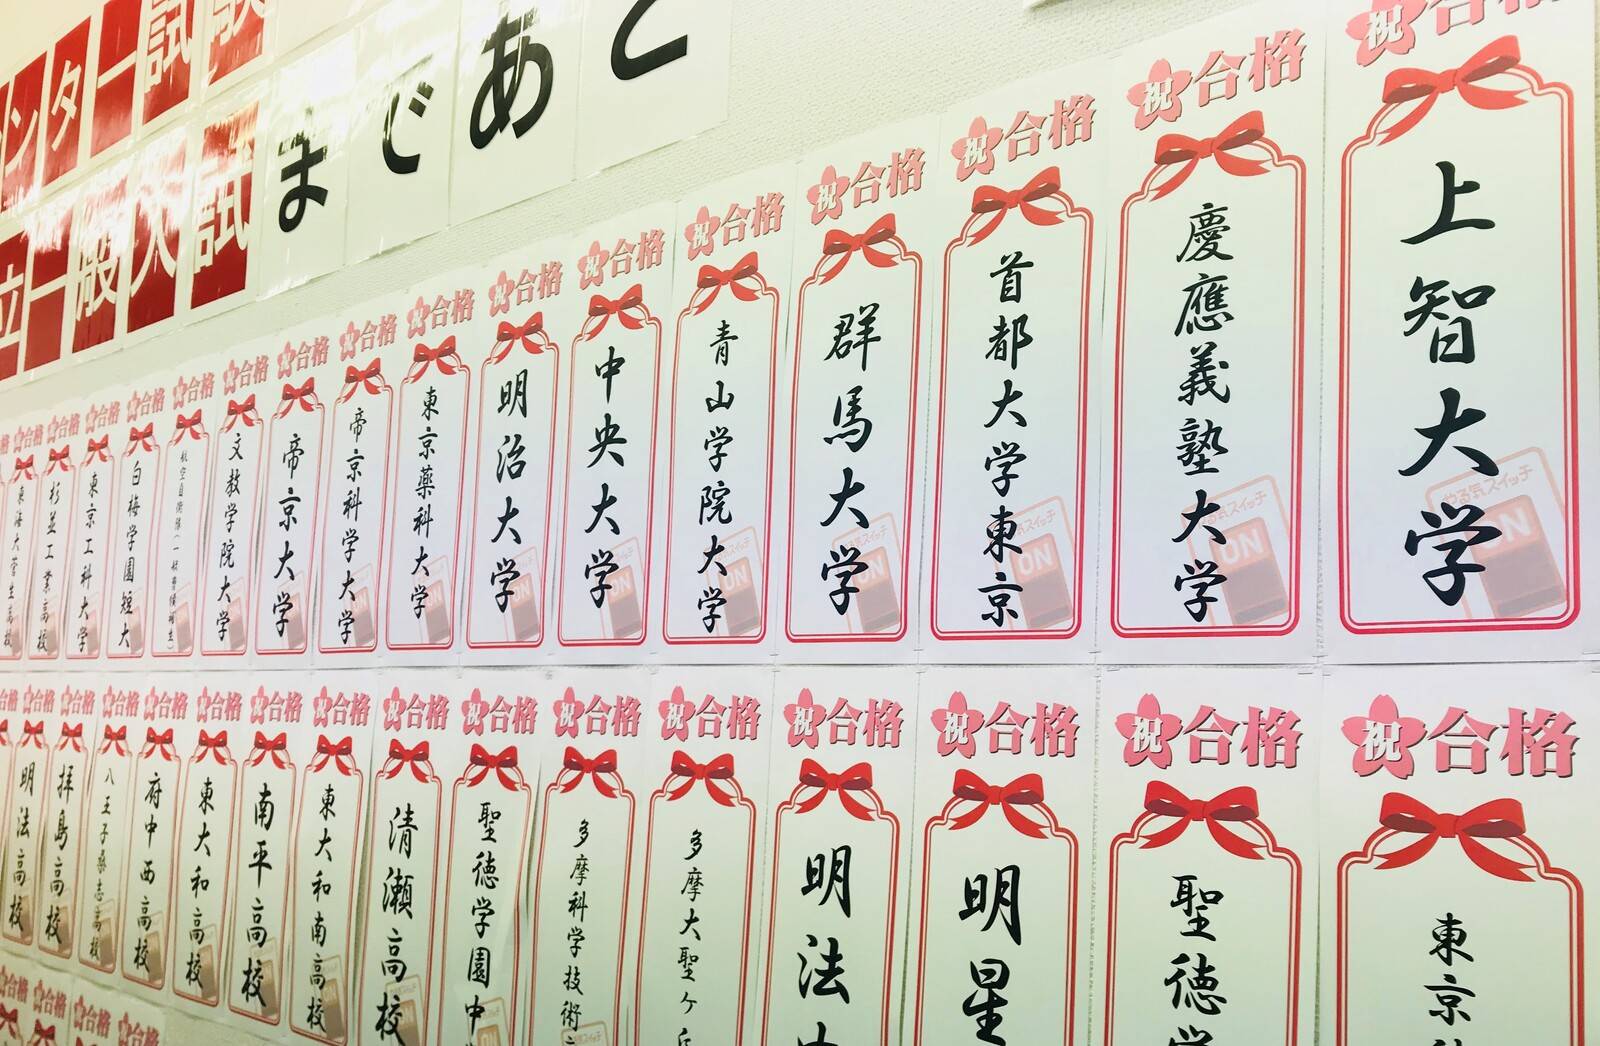 ンター試験
まであと
立一般入試
祝合格
上智大学
やる気スイッチ
ON
祝合格
慶應義塾大学
やる気スイッチ
ON
祝合格
首都大学東京
ON
祝合格
群馬大学
ON
祝合格
青山学院大学
ON
祝合格
中央大学
ON
祝合格
明治大学
祝合格
東京薬科大学
祝合格
帝京科学大学
祝合格
帝京大学
祝合格
文教学院大学
祝合格
航空自衛隊(一般曹候補生)
祝合格
白梅学園短大
祝合格
東京工科大学
祝合格
杉並工業高校
祝合格
東海大菅生高校
祝合格
東京
祝合格
聖徳学
祝合格
明星
祝合格
明法中
祝合格
多摩大聖ケ丘
祝合格
多摩科学技術
祝合格
聖徳学園中
祝合格
清瀬高校
祝合格
東大和南高校
祝合格
南平高校
祝合格
東大和高校
祝合格
府中西高校
祝合格
八王子桑志高校
祝合格
拝島高校
祝合格
明法高校
合格
合格
合格
合格